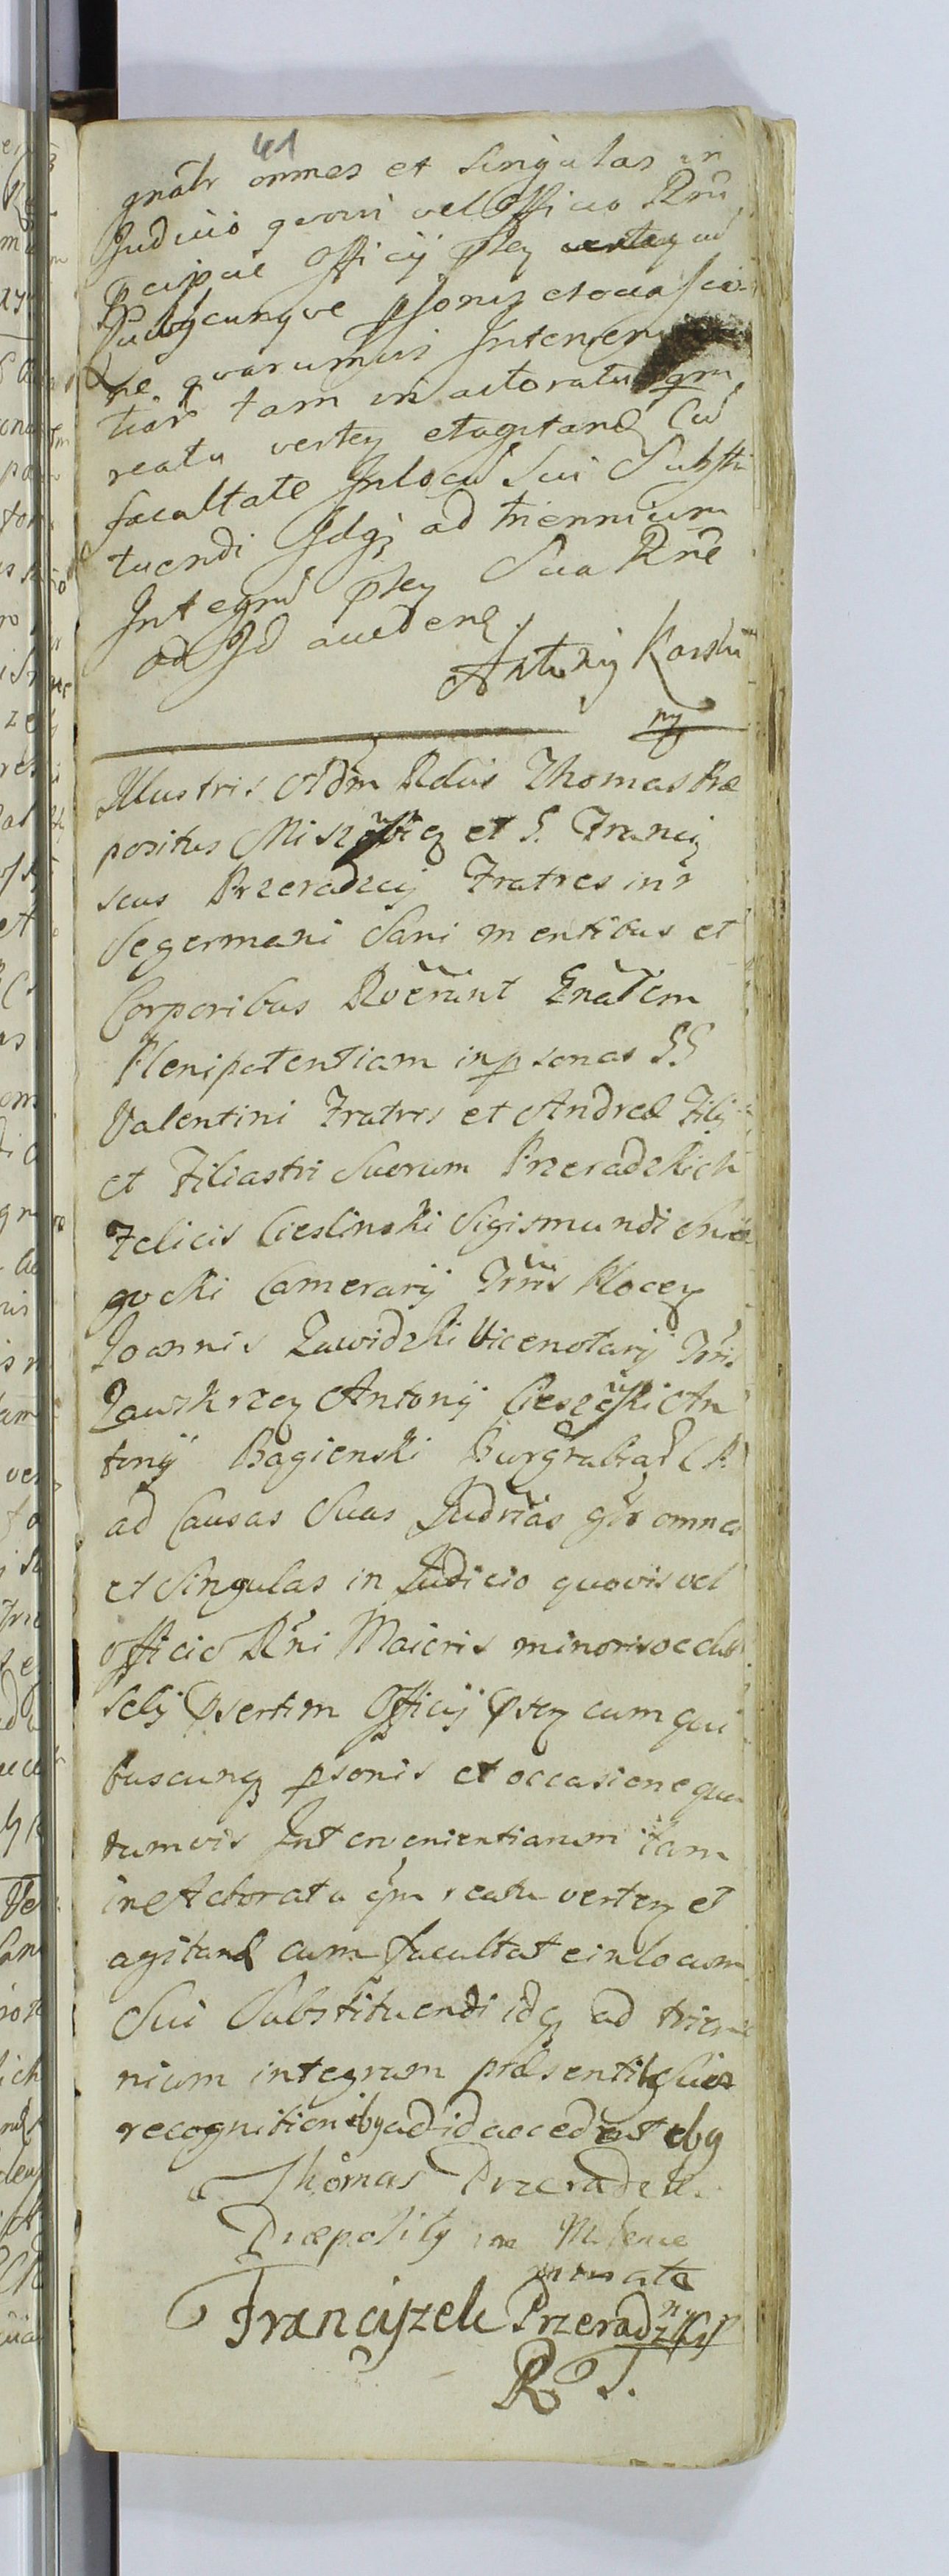 41
gnalr omnes et Singulas in
Judicio quovis vel Officio Rni
pcipue Officij pteq verteq ad
quibscunque psonis et occasio
ne quarumvis Interveni
tiar tam in actoratu qm
reatu verteq et agitand Cu
facultate In locu Sui Substi
tuendi Idq ad triennium
Integru pteq Sua Rne
ad Id accedene
Antoni Karski
mp
Illustris Adm Rdus Thomas Præ
positus et G. Franci
scus Przeradzcij Fratres inr
Se germani Sani mentibus et
Corporibus Roverunt Gnalem
Plenipotentiam in psonas GG
Valentini Fratris et Andreæ Filij
et Filiastri Suorum Przeradzkich
Felicis Cieslinski Sigismundi
gocki Camerarij Trris Ploceq
Joannis Zawidzki Vicenotarij Trris
Zawskrzeq Antonij Cieszewski An
tonij Bagienski Burgrabiae C P
ad Causas Suas Judrias glr omnes
et Singulas in Judicio quovis vel
Officio Rni Maioris minoris
selij psertim Officij pteq cum qui
buscunq psonis et occasione qua
rumvis Intervenientiarum tam
in Actoratu qm reatu verteq et
agitand cum facultate in locum
Sui Substituendi idq ad trien
nium integrum præsentibq Suis
recognitionibq ad id accedentibq
Thomas Przeradzki
Præpositq in
mp
Franciszek Przeradzki
R T.